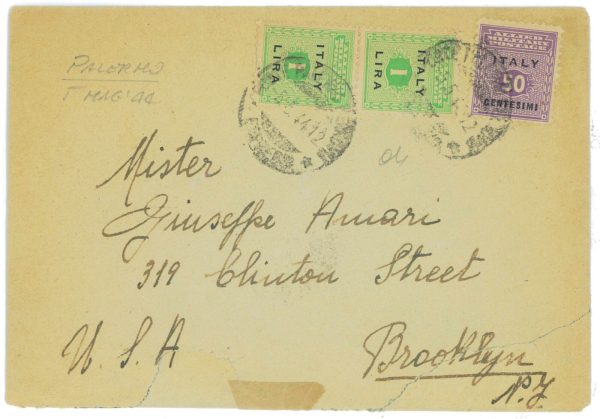 ITALY
1
LIRA
ITALY
1
LIRA
ALLIED
MILITARY
POSTAGE
ITALY
50
CENTESIMI
44.12
PALERMO
Mister
Giuseffe Amari
319 Clinton Street
U. S. A
Brooklyn
N.Y.